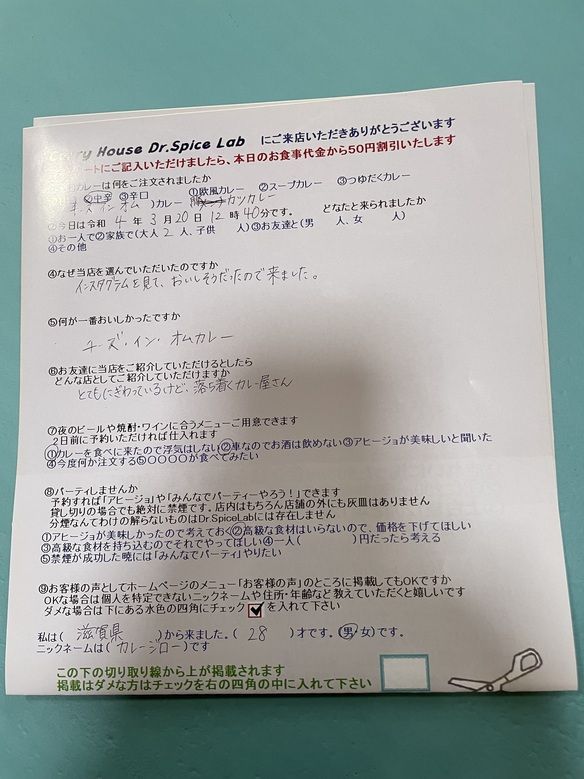 Curry House Dr.Spice Lab にご来店いただきありがとうございます
ートにご記入いただけましたら、本日のお食事代金から50円割引いたします
カレーは何をご注文されましたか ①欧風カレー ②スープカレー ③つゆだくカレー
②中辛 ③辛口
チーズインオム)カレー カツカレー
②今日は令和 4 年 3 月 20 日 12 時 40 分です。 どなたと来られましたか
①お一人で②家族で(大人 2 人、子供 人)③お友達と(男 人、女 人)
④その他
④なぜ当店を選んでいただいたのですか
インスタグラムを見て、おいしそうだったので来ました。
⑤何が一番おいしかったですか
チーズ・イン・オムカレー
⑥お友達に当店をご紹介していただけるとしたら
どんな店としてご紹介していただけますか
とてもにぎわっているけど、落ち着くカレー屋さん
⑦夜のビールや焼酎・ワインに合うメニューご用意できます
2日前に予約いただければ仕入れます
①カレーを食べに来たので浮気はしない②車なのでお酒は飲めない③アヒージョが美味しいと聞いた
④今度何か注文する⑤〇〇〇〇が食べてみたい
⑧パーティしませんか
予約すれば「アヒージョ」や「みんなでパーティーやろう！」できます
貸し切りの場合でも絶対に禁煙です。店内はもちろん店舗の外にも灰皿はありません
分煙なんてわけの解らないものはDr.SpiceLabには存在しません
①アヒージョが美味しかったので考えておく②高級な食材はいらないので、価格を下げてほしい
③高級な食材を持ち込むのでそれでやってほしい④一人( )円だったら考える
⑤禁煙が成功した暁には「みんなでパーティ」やりたい
⑨お客様の声としてホームページのメニュー「お客様の声」のところに掲載してもOKですか
OKな場合は個人を特定できないニックネームや住所・年齢など教えていただくと嬉しいです
ダメな場合は下にある水色の四角にチェック☑を入れて下さい
私は( 滋賀県 )から来ました。( 28 )才です。(男/女)です。
ニックネームは( カレージロー)です
この下の切り取り線から上が掲載されます
掲載はダメな方はチェックを右の四角の中に入れて下さい